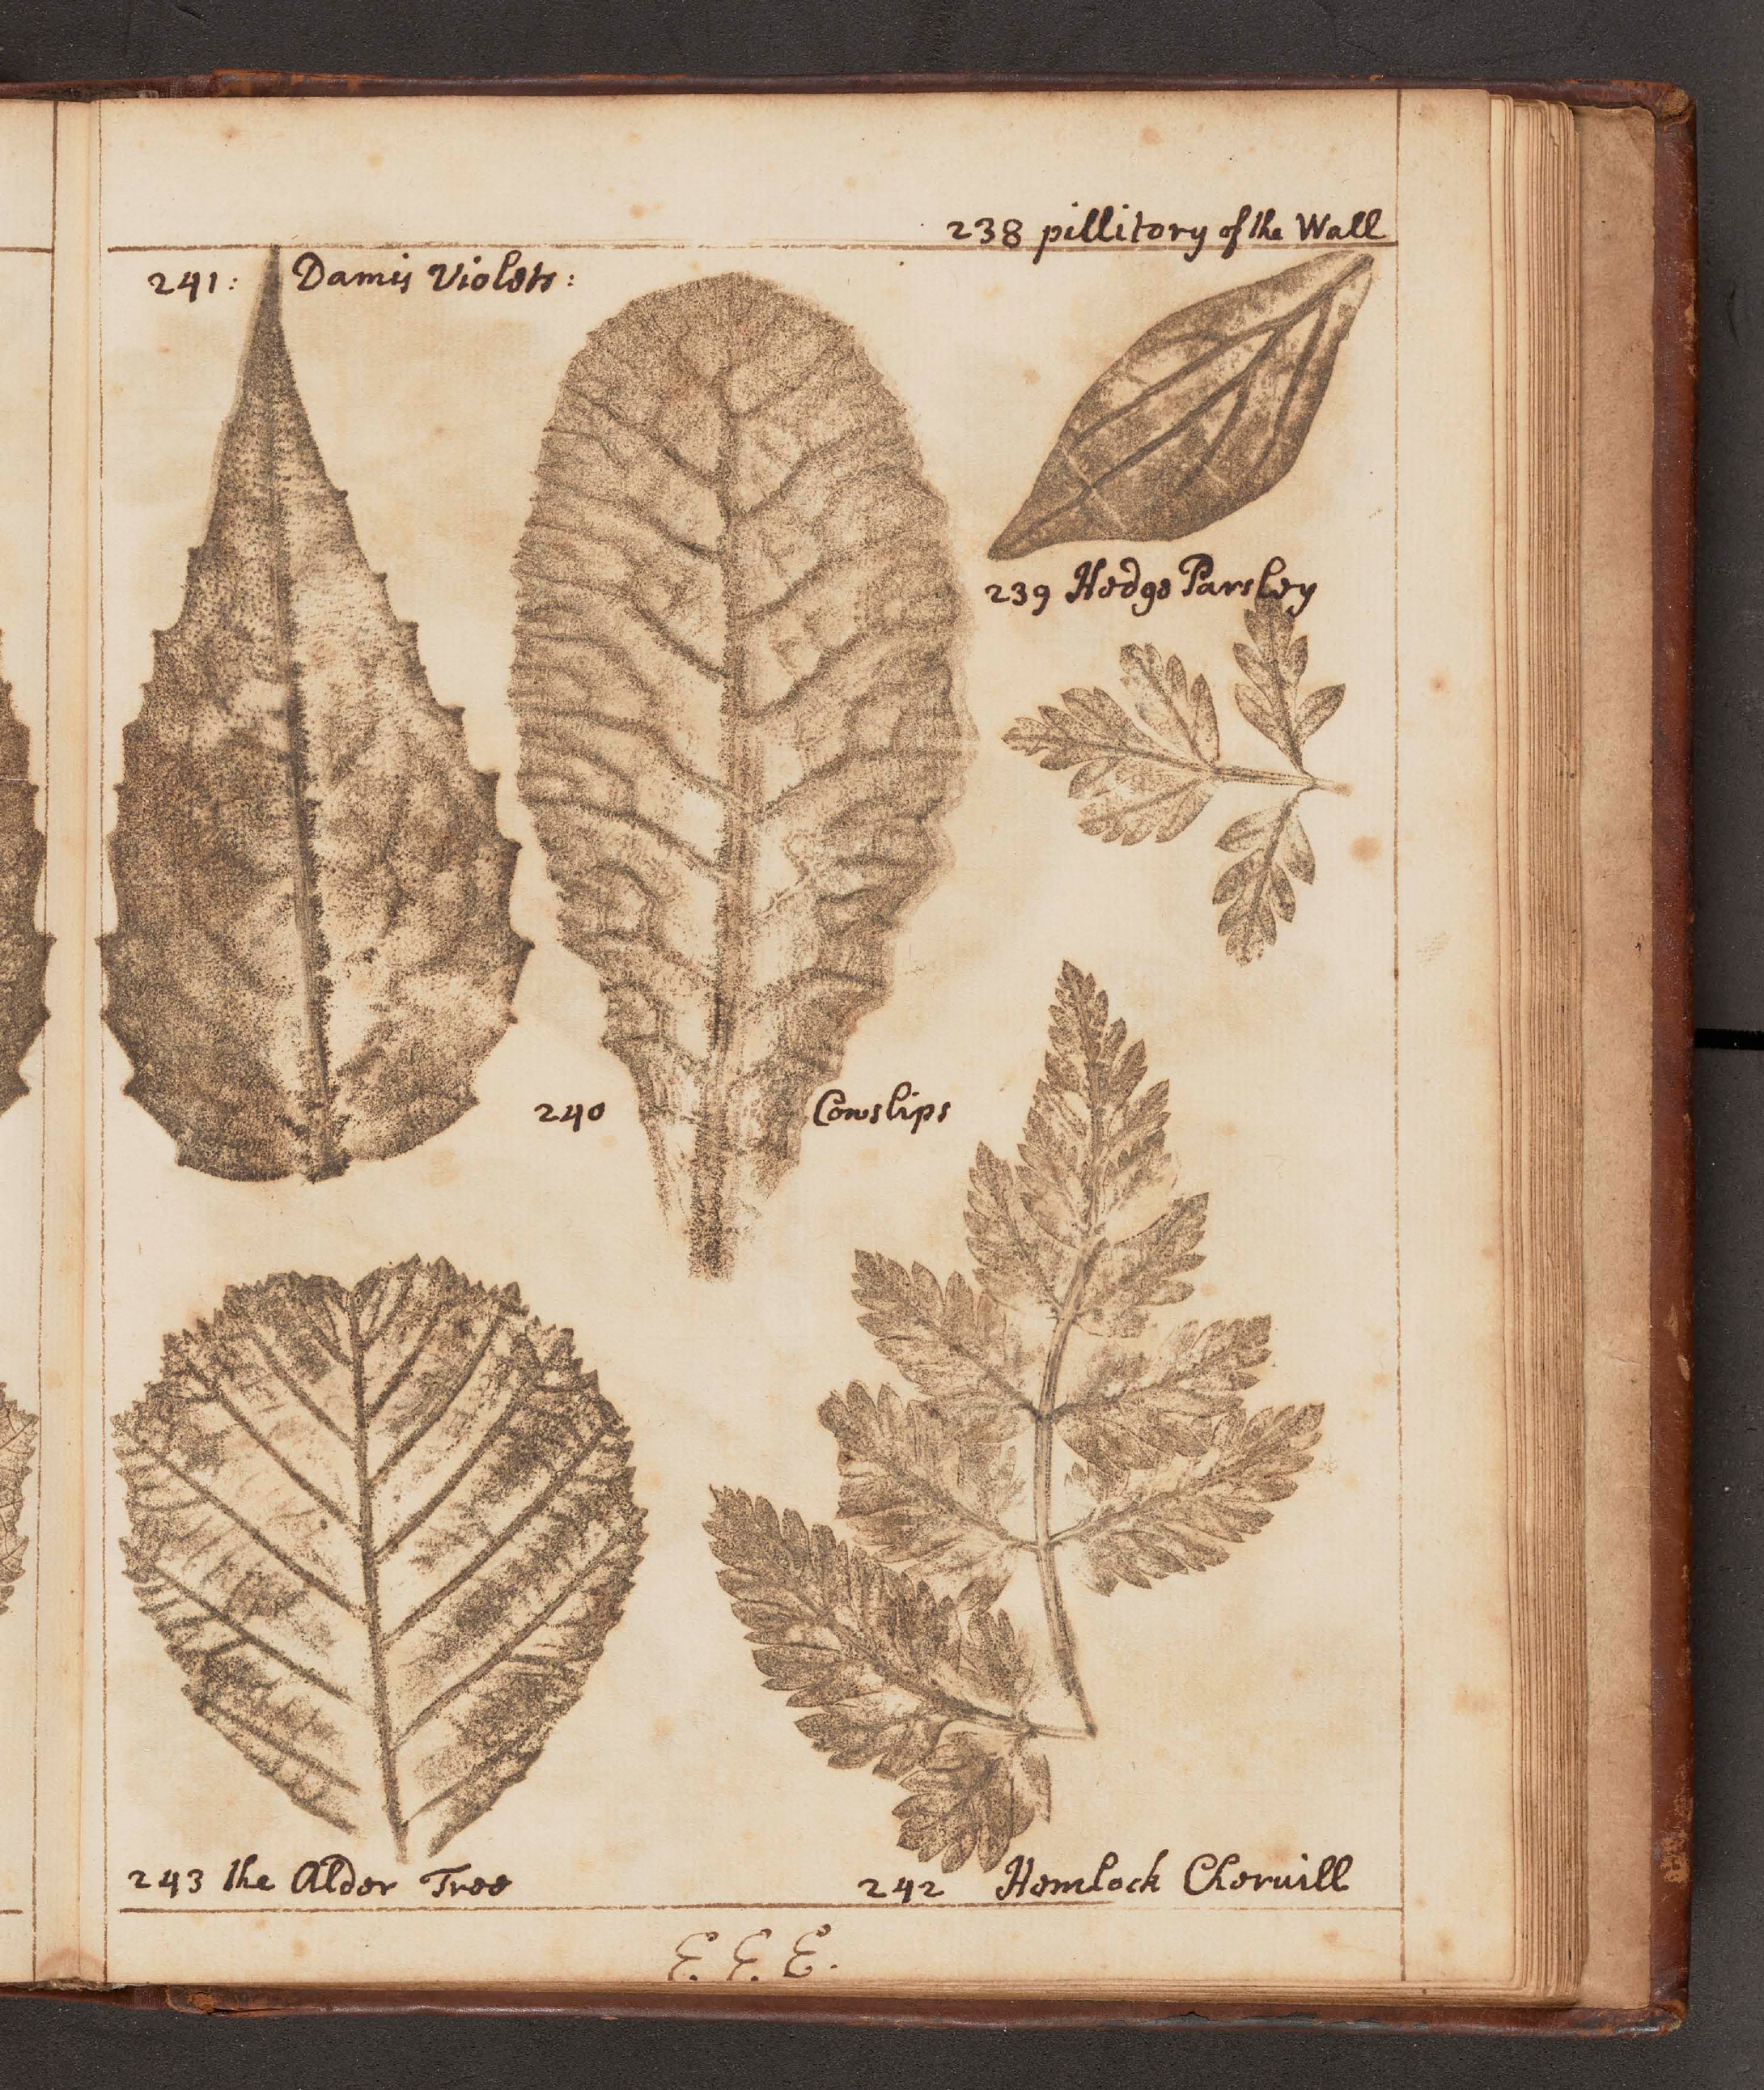 238 pillitory of the Wall
241: Damis Violets:
239 Hedge Parsley
240 Cowslips
243 the Alder Tree
242 Hemlock Chervill
E. E. E.